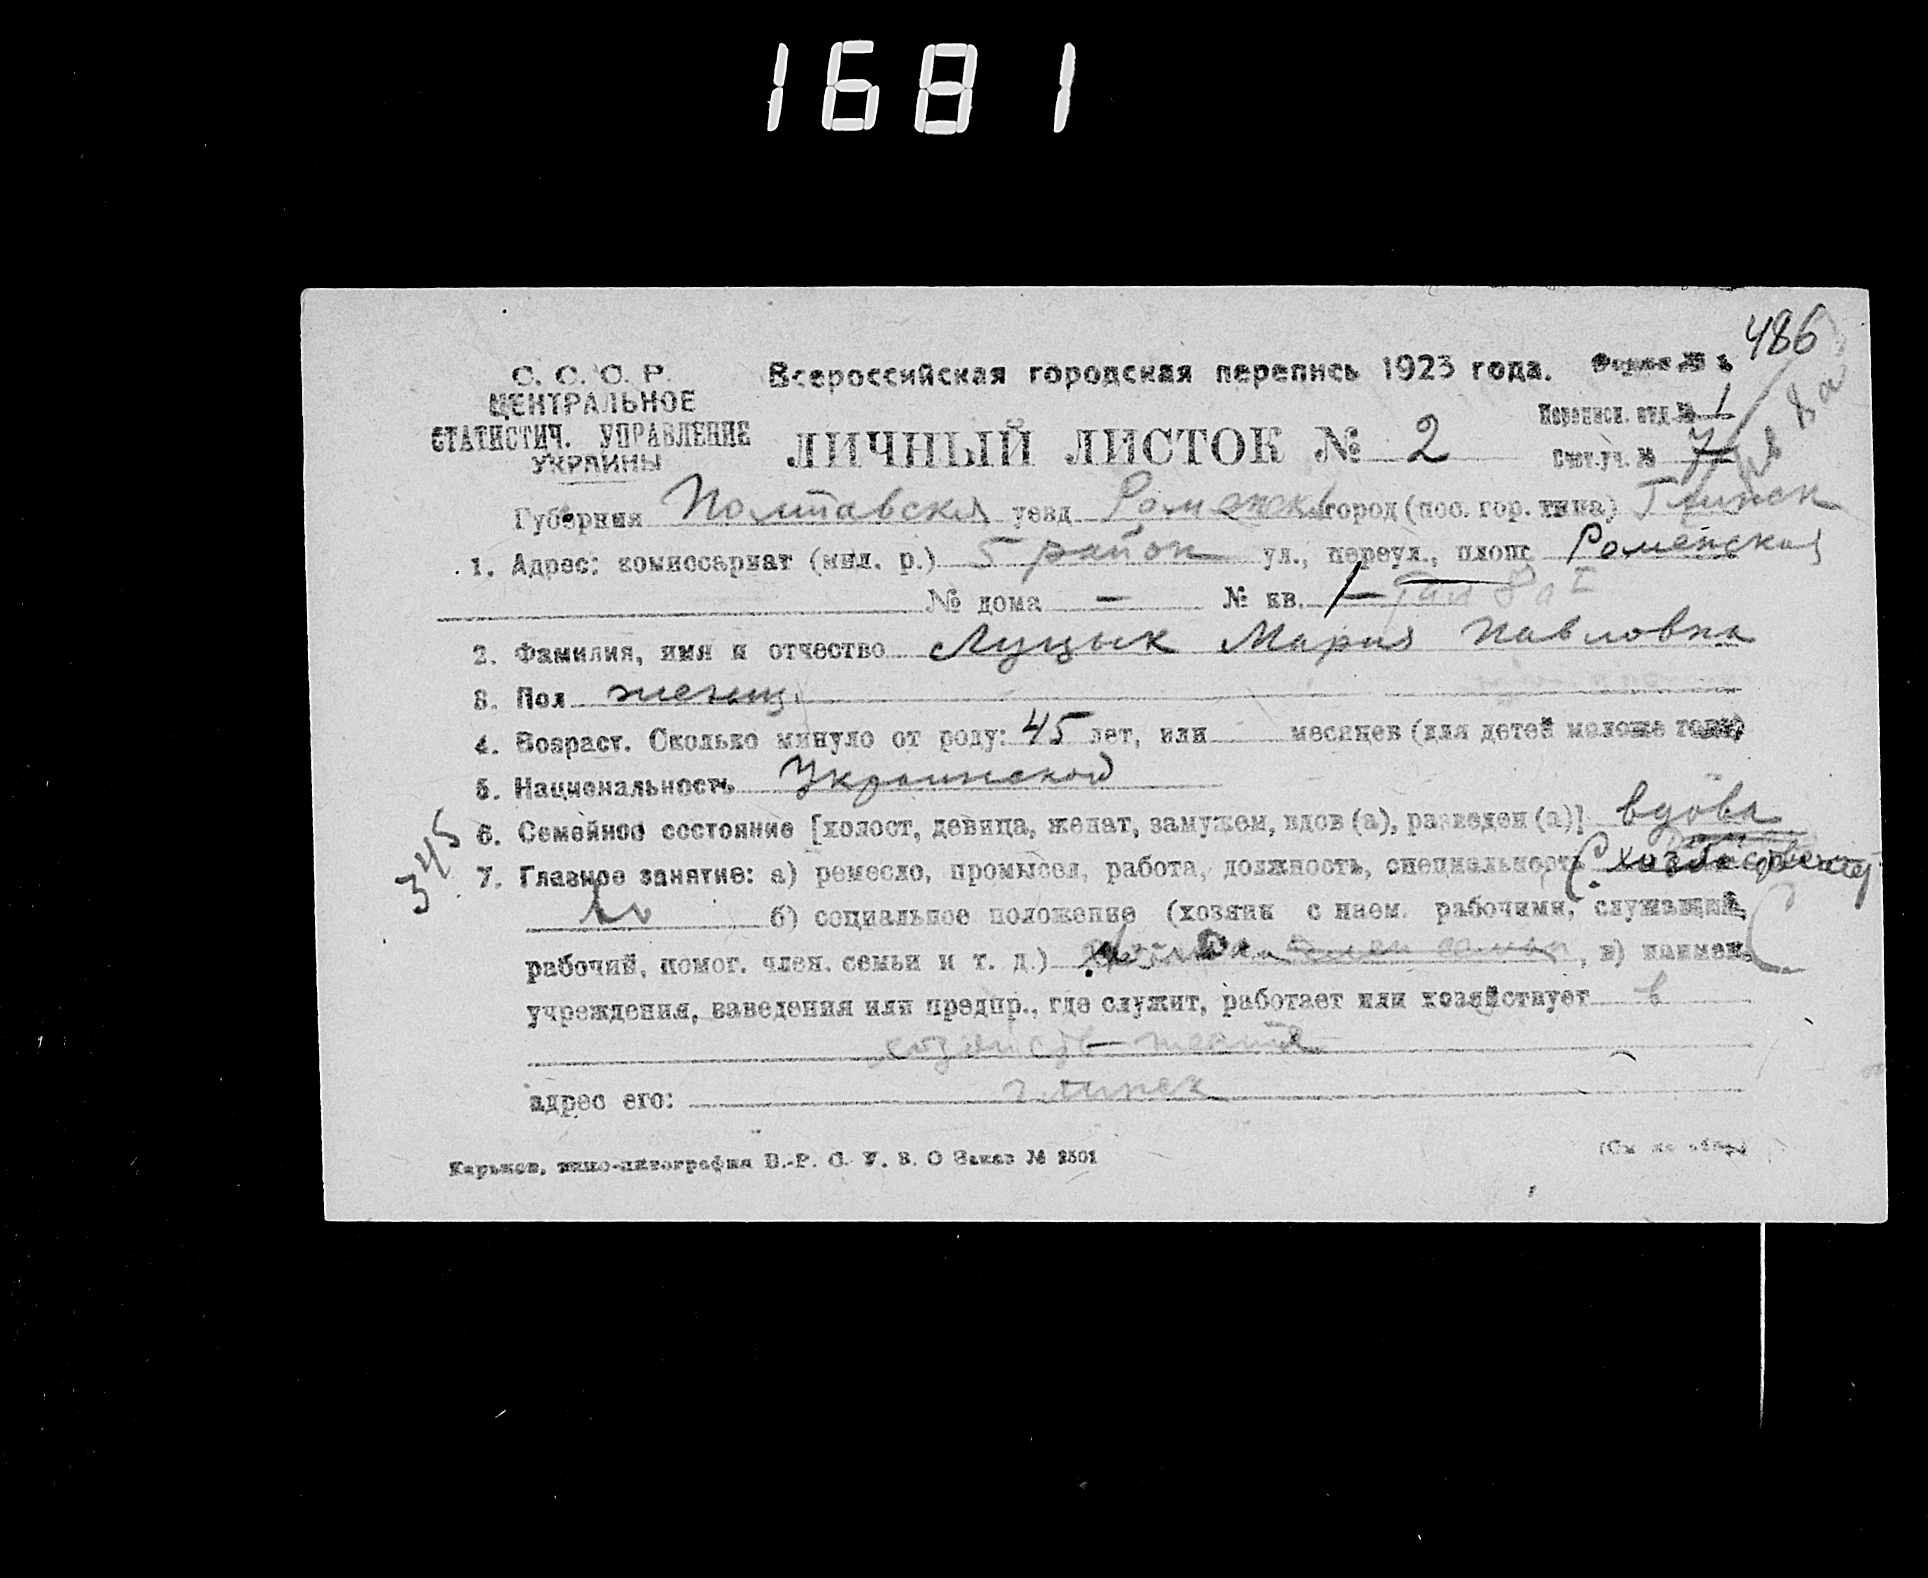 1681
486
С. С. С. Р.
ЦЕНТРАЛЬНОЕ
СТАТИСТИЧ. УПРАВЛЕНИЕ
УКРАИНЫ
Всероссийская городская перепись 1923 года. Форма №
Переписн. отд. № 1
ЛИЧНЫЙ ЛИСТОК № 2
Счет. уч. № 7
Губерния Полтавская уезд город (пос. гор. типа) Глинск
1. Адрес: комиссариат (мил. р.) 5 район ул., переул., площ. Роменская
№ дома — № кв. —
2. Фамилия, имя и отчество Луцык Мария Павловна
3. Пол женщ.
4. Возраст. Сколько минуло от роду: 45 лет, или месяцев (для детей моложе года)
5. Национальность Украинской
6. Семейное состояние [холост, девица, женат, замужем, вдов (а), разведен (а)] вдова
345
7. Главное занятие: а) ремесло, промысел, работа, должность, специальность
б) социальное положение (хозяин с наем. рабочими, служащий,
рабочий, помог. член. семьи и т. д.) член семьи, в) наимен.
учреждения, заведения или предпр., где служит, работает или хозяйствует в
адрес его: Глинск
Харьков, типо-литография В.-Р. С. У. В. О Заказ № 2501
(См. на обор.)